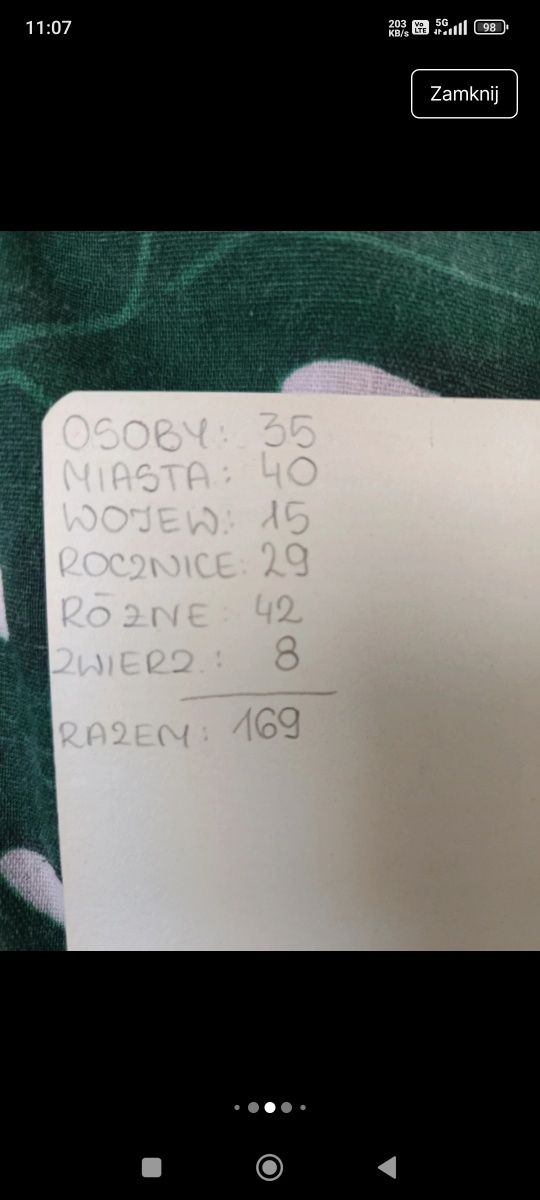 11:07
203 KB/s Vo LTE 5G 98
Zamknij
OSOBY: 35
MIASTA: 40
WOJEW.: 15
ROCZNICE: 29
RÓŻNE: 42
ZWIERZ.: 8
RAZEM: 169